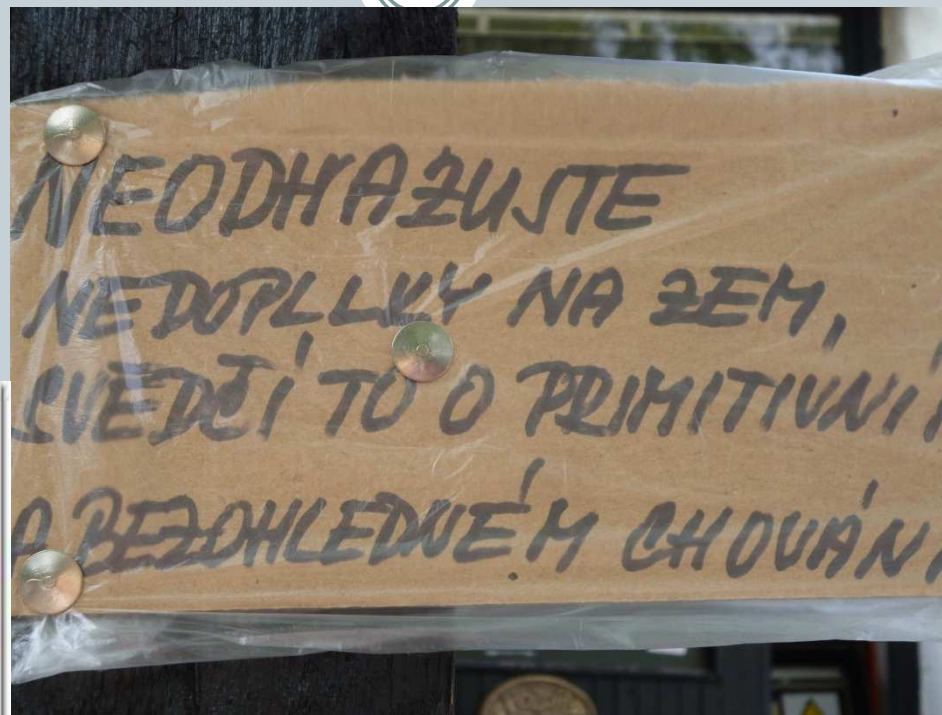 NEODHAZUJTE
NEDOPLLKY NA ZEM,
SVEDČÍ TO O PRIMITIVNÍ
A BEZOHLEDNÉM CHOVÁNÍ